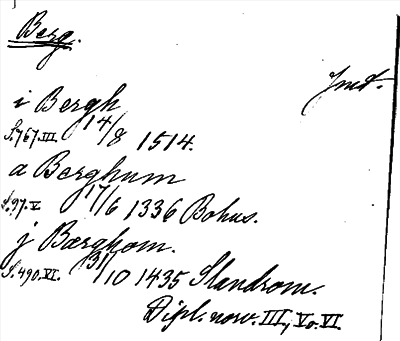 Berg.
Jmt.
i Bergh
S.767.III. 14/8 1514.
a Berghum
S.97.V 17/6 1336 Bohus.
j Bærghom.
S.490.VI. 31/10 1435 Stendrom.
Dipl. norv. III, V o. VI